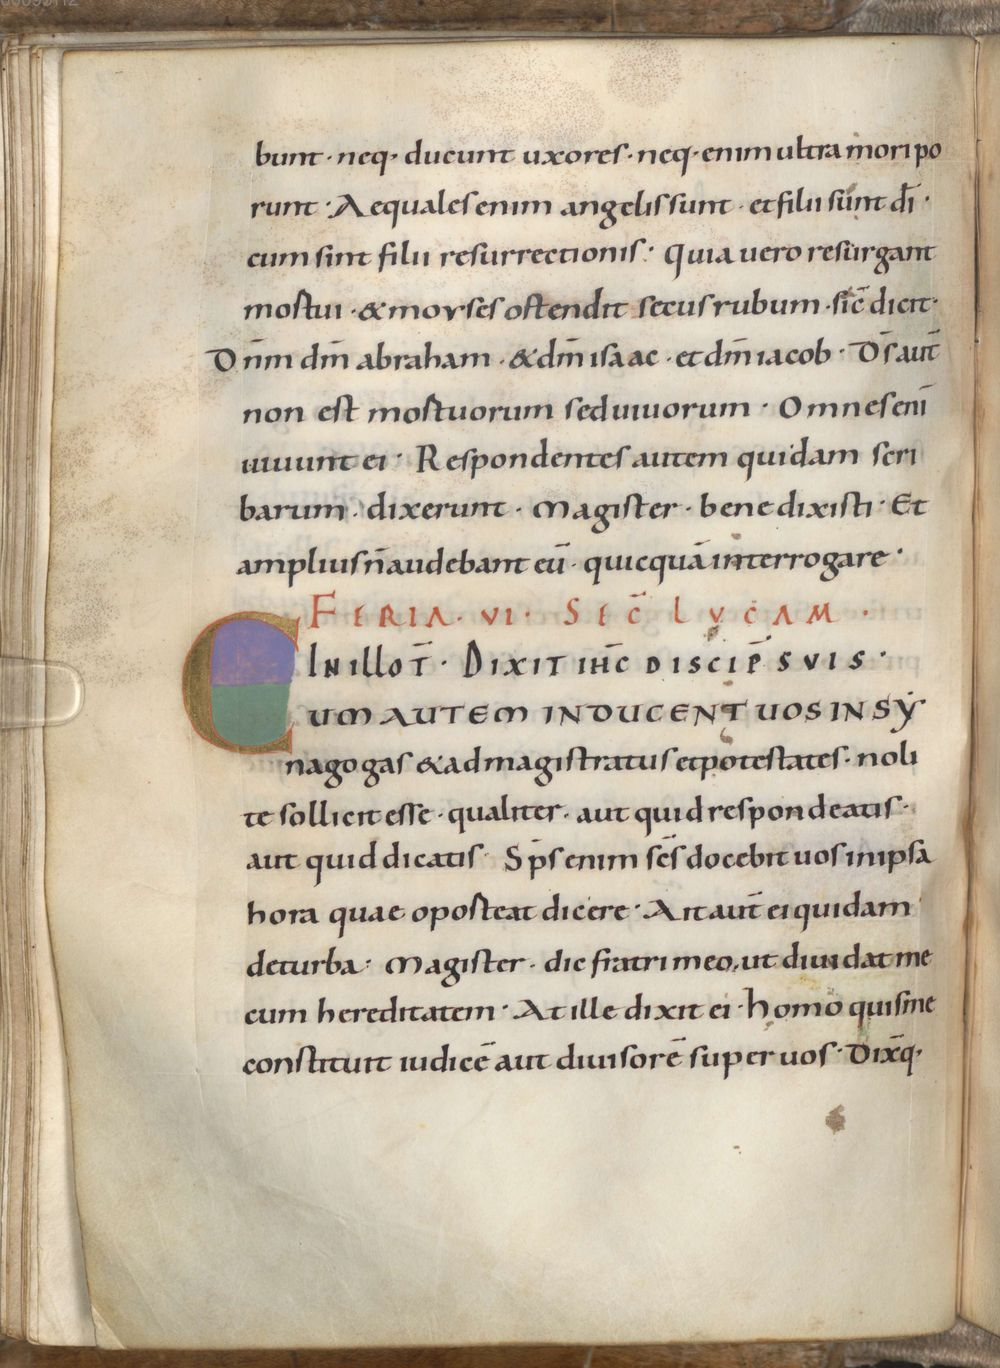 bunt · neq· ducunt uxores · neq· enim ultra mori po
runt · Aequales enim angelis sunt · et filii sunt dī ·
cum sint filii resurrectionis · Quia vero resurgant
mortui · & moyses ostendit secus rubum · sic̄ dicit ·
Dn̄m dm̄ abraham · & dm̄ isaac · et dm̄ iacob · Ds̄ aut̄
non est mortuorum sed uiuorum · Omnes enī
uiuunt ei · Respondentes autem quidam scri
barum · dixerunt · Magister · bene dixisti · Et
amplius n̄ audebant eū · quicquā interrogare ·
FERIA · VI · SEC̄ LVCAM ·
IN ILLO T̄ · DIXIT IHC̄ DISCIP̄ SVIS ·
CUM AUTEM INDUCENT UOS IN SY
nagogas & ad magistratus et potestates · noli
te solliciti esse · qualiter · aut quid respondeatis ·
aut quid dicatis · Sp̄s enim sc̄s docebit uos in ipsa
hora quae oporteat dicere · Ait aut̄ ei quidam
de turba · Magister · dic fratri meo, ut diuidat me
cum hereditatem · At ille dixit ei · homo quis me
constituit iudicē aut diuisorē super uos · Dix̄q·